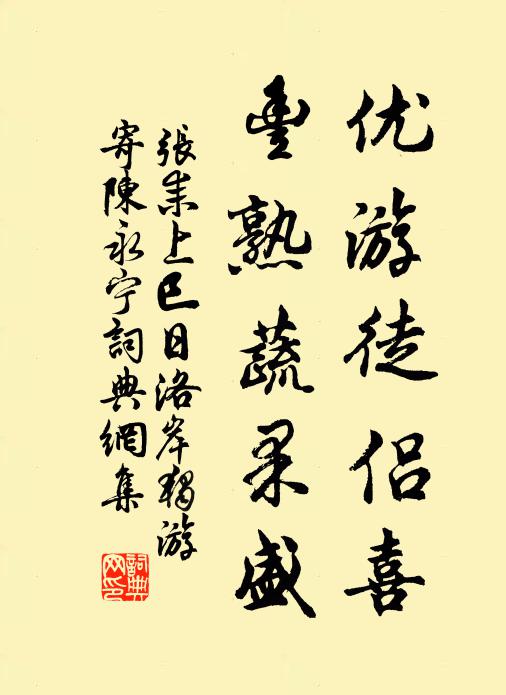 优游徒侣喜
豊熟蔬果盛
張耒上巳日洛岸獨游
寄陳永宁詞典網集
詞典
网印